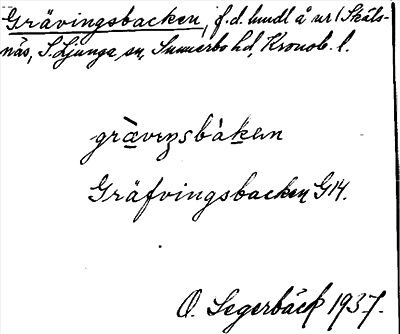 Grävingsbacken, f.d. lmdl å nr 1 Skäls-
näs, S. Ljunga sn, Sunnerbo hd, Kronob. l.
Gräfvingsbacken G14.
O. Segerbäck 1937.